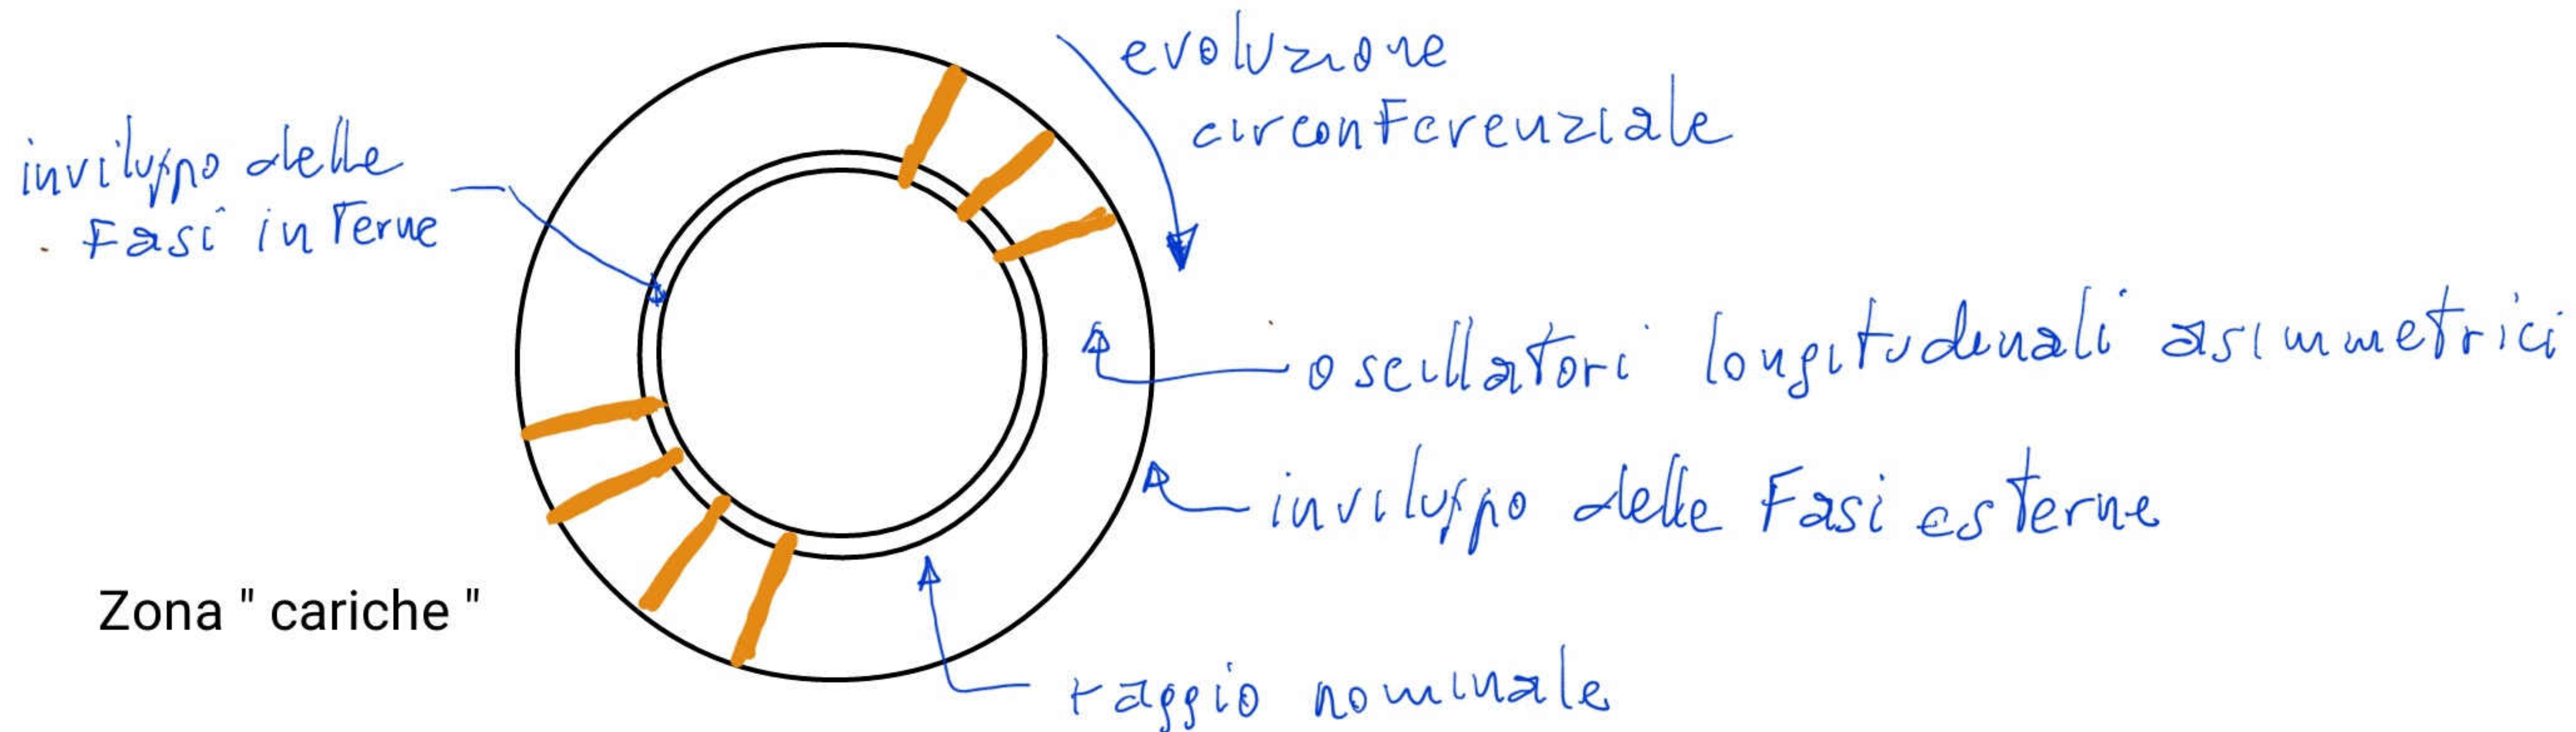 evoluzione
circonferenziale
inviluppo delle
Fasi interne
oscillatori longitudinali asimmetrici
inviluppo delle Fasi esterne
Zona " cariche "
raggio nominale